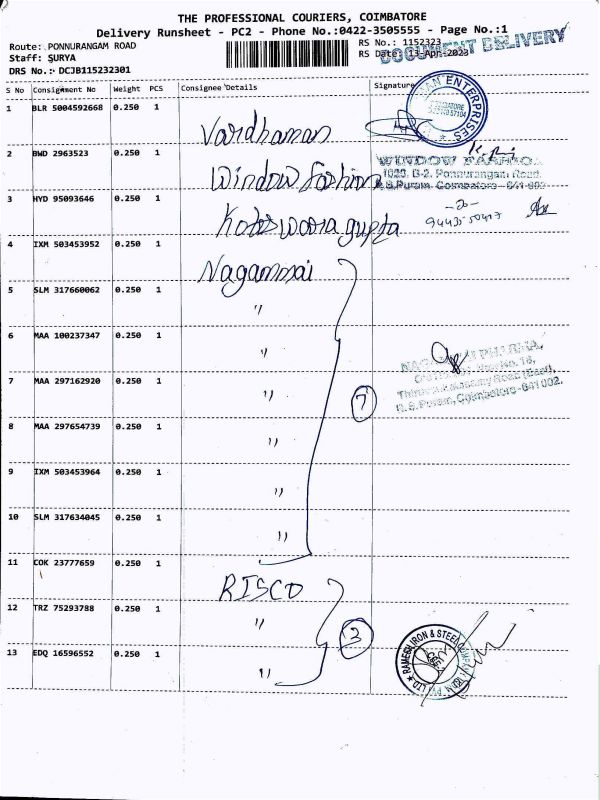 THE PROFESSIONAL COURIERS, COIMBATORE
Delivery Runsheet - PC2 - Phone No.:0422-3505555 - Page No.:1
Route: PONNURANGAM ROAD
RS No.: 1152323
DOCUMENT DELIVERY
Staff: SURYA
RS Date: 13-Apr-2023
DRS No.: DCJB115232301
S No Consignment No Weight PCS Consignee Details Signature
1 BLR 5004592668 0.250 1 Vardhaman
ENTERPRISES
2 BWD 2963523 0.250 1 Window Fashion
WINDOW FASHION
1020, B-2, Ponnurangam Road,
R.S.Puram, Coimbatore - 641 002
3 HYD 95093646 0.250 1 Koteswara gupta
4 IXM 503453952 0.250 1 Nagammai
5 SLM 317660062 0.250 1 "
6 MAA 100237347 0.250 1 "
7 MAA 297162920 0.250 1 "
7
PHARMA,
R.S. Puram, Coimbatore - 641 002.
8 MAA 297654739 0.250 1 "
9 IXM 503453964 0.250 1 "
10 SLM 317634045 0.250 1 "
11 COK 23777659 0.250 1 RISCO
12 TRZ 75293788 0.250 1 "
3
13 EDQ 16596552 0.250 1 "
RAMESH IRON & STEEL COMPANY